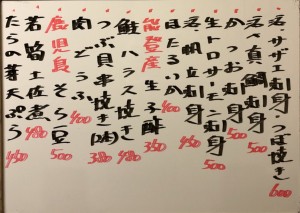 活サザエ刺身・つぼ焼き 600
活〆真鯛刺身 500
かつお刺身 500
生トロサーモン刺身 500
活帆立刺身 450
ほたるいか 400
能登産生子酢 350
鮭ハラス焼き 480
つぶ貝串焼き 380
肉どうふ 400
鹿児島そら豆 500
若筍土佐煮 480
たらの芽天ぷら 450